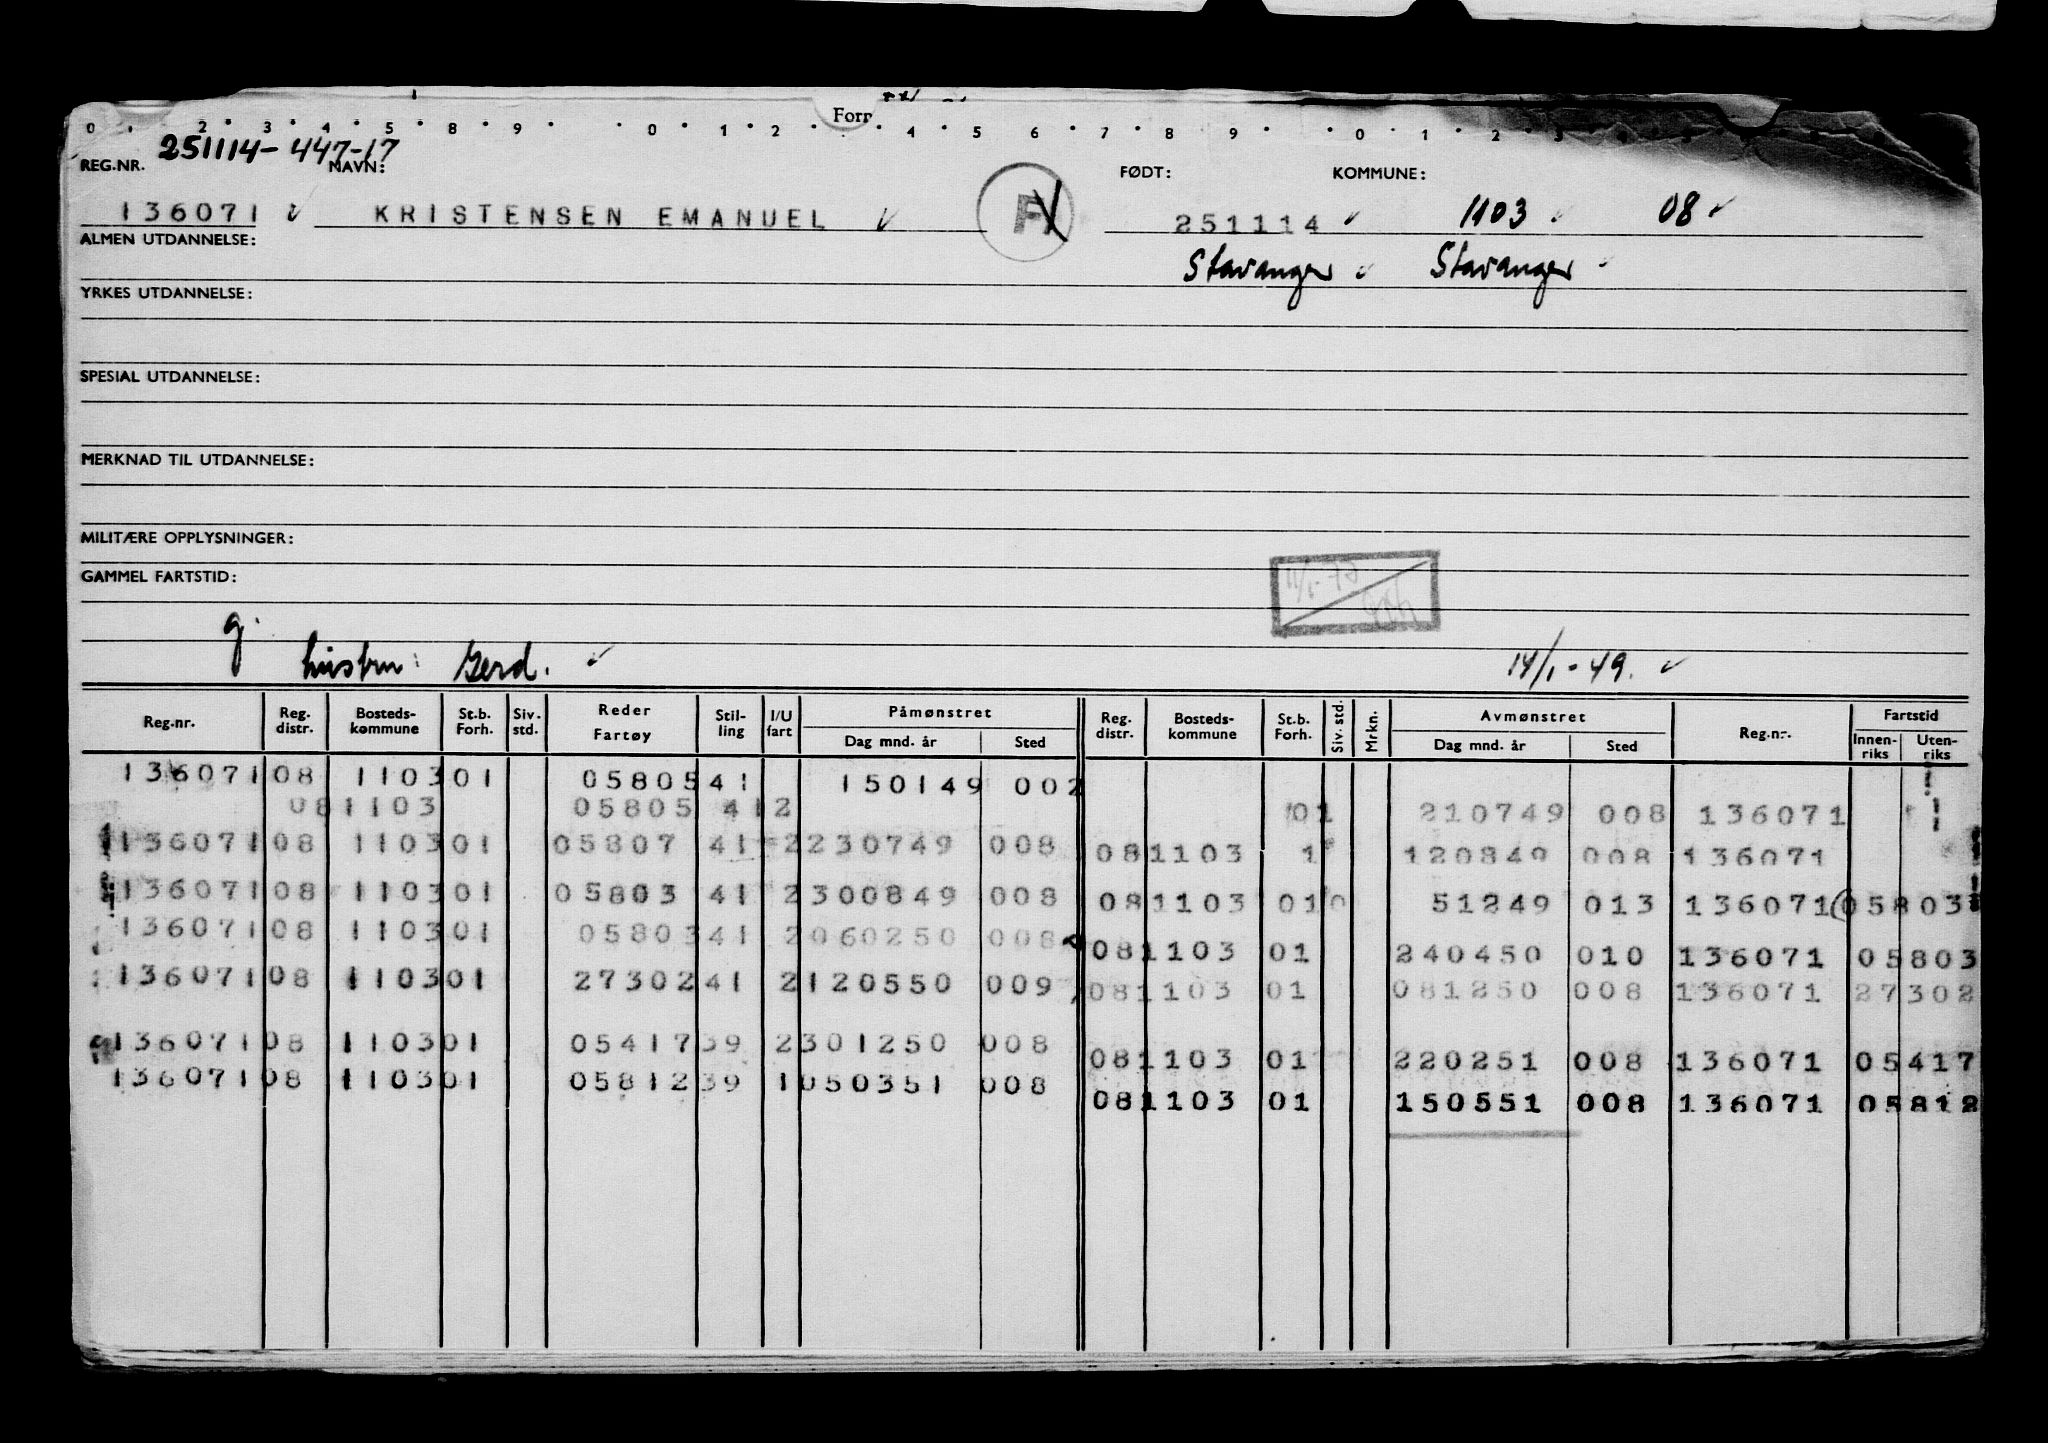 Forr
0 2 3 4 5 8 9 0 1 2 4 5 6 7 8 9 0 1 2 3
251114-447-17
REG.NR. NAVN: FØDT: KOMMUNE:
136071 KRISTENSEN EMANUEL F 251114 1103 08
ALMEN UTDANNELSE: Stavanger Stavanger
YRKES UTDANNELSE:
SPESIAL UTDANNELSE:
MERKNAD TIL UTDANNELSE:
MILITÆRE OPPLYSNINGER:
GAMMEL FARTSTID:
g.
hustru: Gerd. 14/1-49.
Reg.nr. Reg. distr. Bosteds-kommune St.b. Forh. Siv. std. Reder Fartøy Stil-ling I/U fart Påmønstret Dag mnd. år Sted Reg. distr. Bosteds-kommune St.b. Forh. Siv. std. Mrkn. Avmønstret Dag mnd. år Sted Reg.nr. Fartstid Innen-riks Uten-riks
136071 08 1103 01 05805 41 150149 002
08 1103 05805 41 2 01 210749 008 136071
136071 08 1103 01 05807 41 2 230749 008 08 1103 1 120849 008 136071
136071 08 1103 01 05803 41 2 300849 008 08 1103 01 0 51249 013 136071 05803
136071 08 1103 01 05803 41 2 060250 008 08 1103 01 240450 010 136071 05803
136071 08 1103 01 27302 41 2 120550 009 08 1103 01 081250 008 136071 27302
136071 08 1103 01 05417 39 2 301250 008 08 1103 01 220251 008 136071 05417
136071 08 1103 01 05812 39 1 050351 008 08 1103 01 150551 008 136071 05812